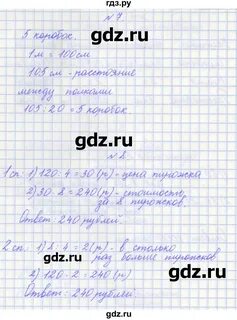 gdz.ru
№ 7
5 коробок.
1м = 100см
105см - расстояние
между полками
105 : 20 = 5 коробок.
gdz.ru
№ 8
1 сп. 1) 120 : 4 = 30 (р) - цена пирожка
2) 30 · 8 = 240 (р) - стоимость
за 8 пирожков
Ответ: 240 рублей
gdz.ru
2 сп. 1) 8 : 4 = 2 (р) - в столько
раз больше пирожков
2) 120 · 2 = 240 (р)
Ответ: 240 рублей
gdz.ru